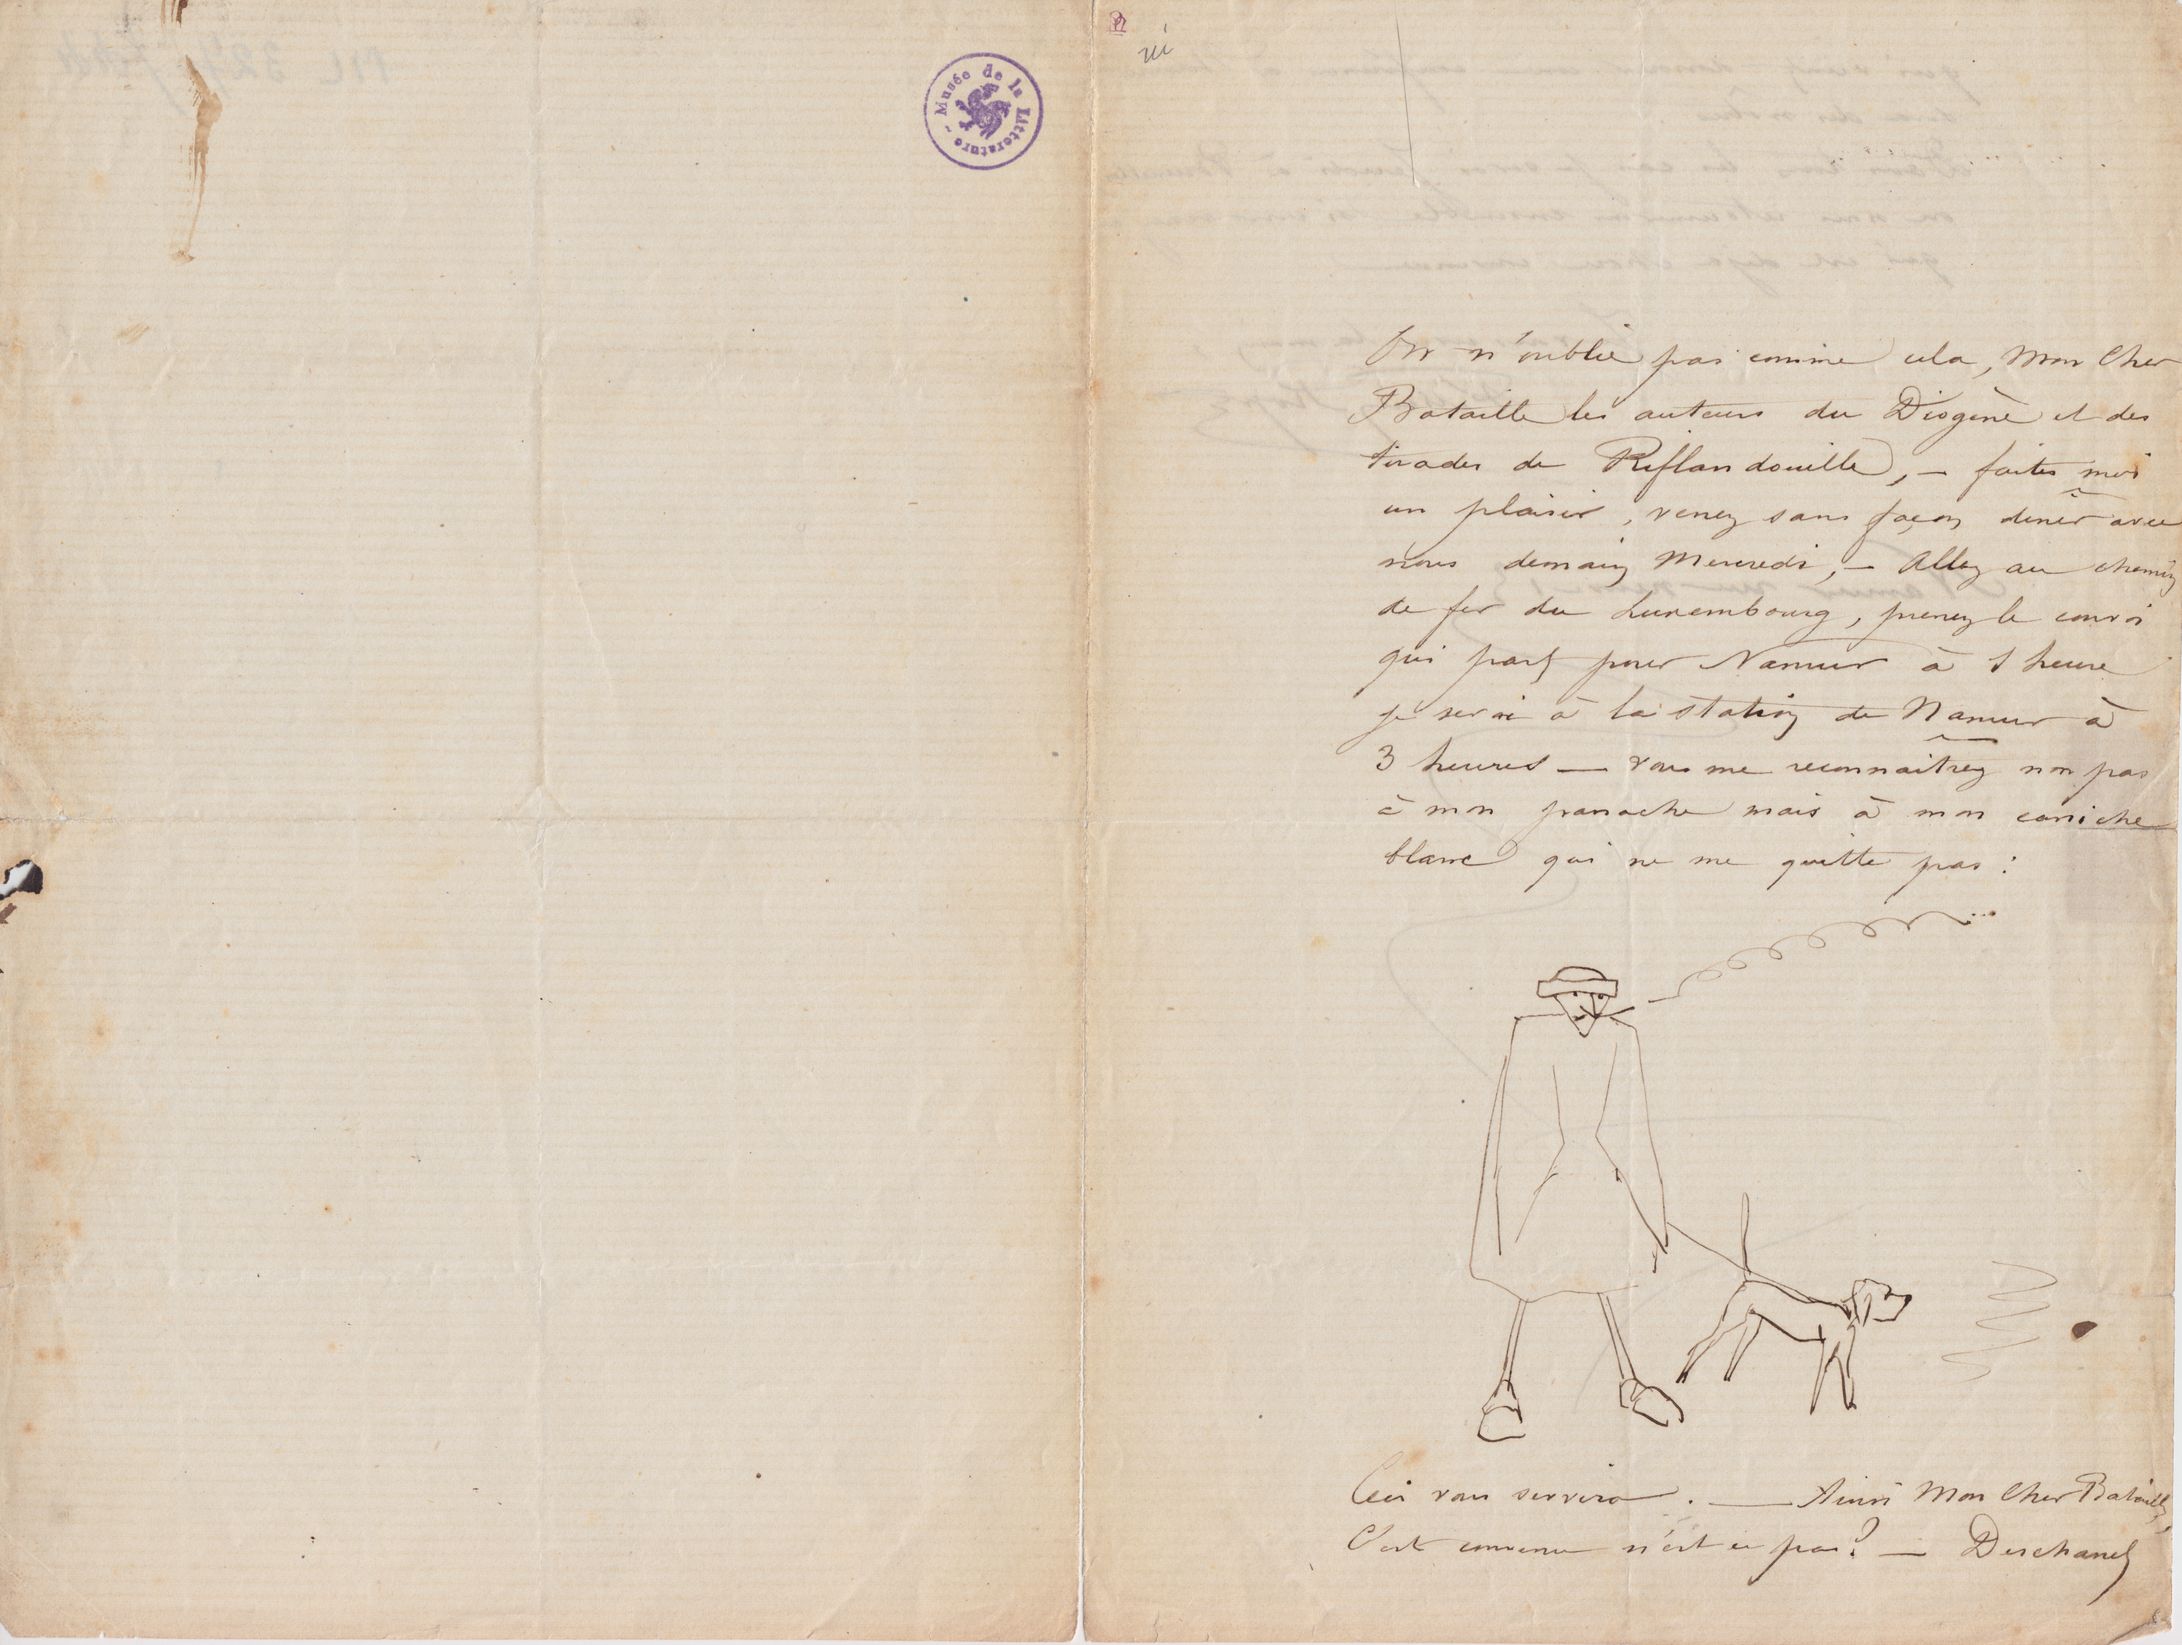 Musée de la Littérature
On n'oublie pas comme cela, Mon Cher
Bataille les auteurs du Diogène et des
tirades de Riflandouille, – faites moi
un plaisir, venez sans façon dîner avec
nous demain Mercredi, – Allez au chemin
de fer du Luxembourg, prenez le convoi
qui part pour Namur à 1 heure
je serai à la station de Namur à
3 heures — vous me reconnaîtrez non pas
à mon panache mais à mon caniche
blanc qui ne me quitte pas :
Ceci vous servira. — Ainsi Mon Cher Bataille,
C'est convenu n'est ce pas? — Deschanel